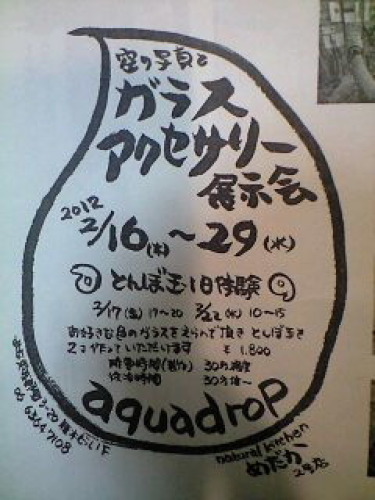 空の写真と
ガラス
アクセサリー
展示会
2012
2/16(木)～29(水)
とんぼ玉1日体験
2/17(金) 17～20 2/22(水) 10～15
お好きな色のガラスをえらんで頂き とんぼ玉を
2コ作っていただいます ¥1,800
所要時間(制作) 30分程度
30分後～
aquadrop
natural kitchen
めだか
2号店
06 6364 7108